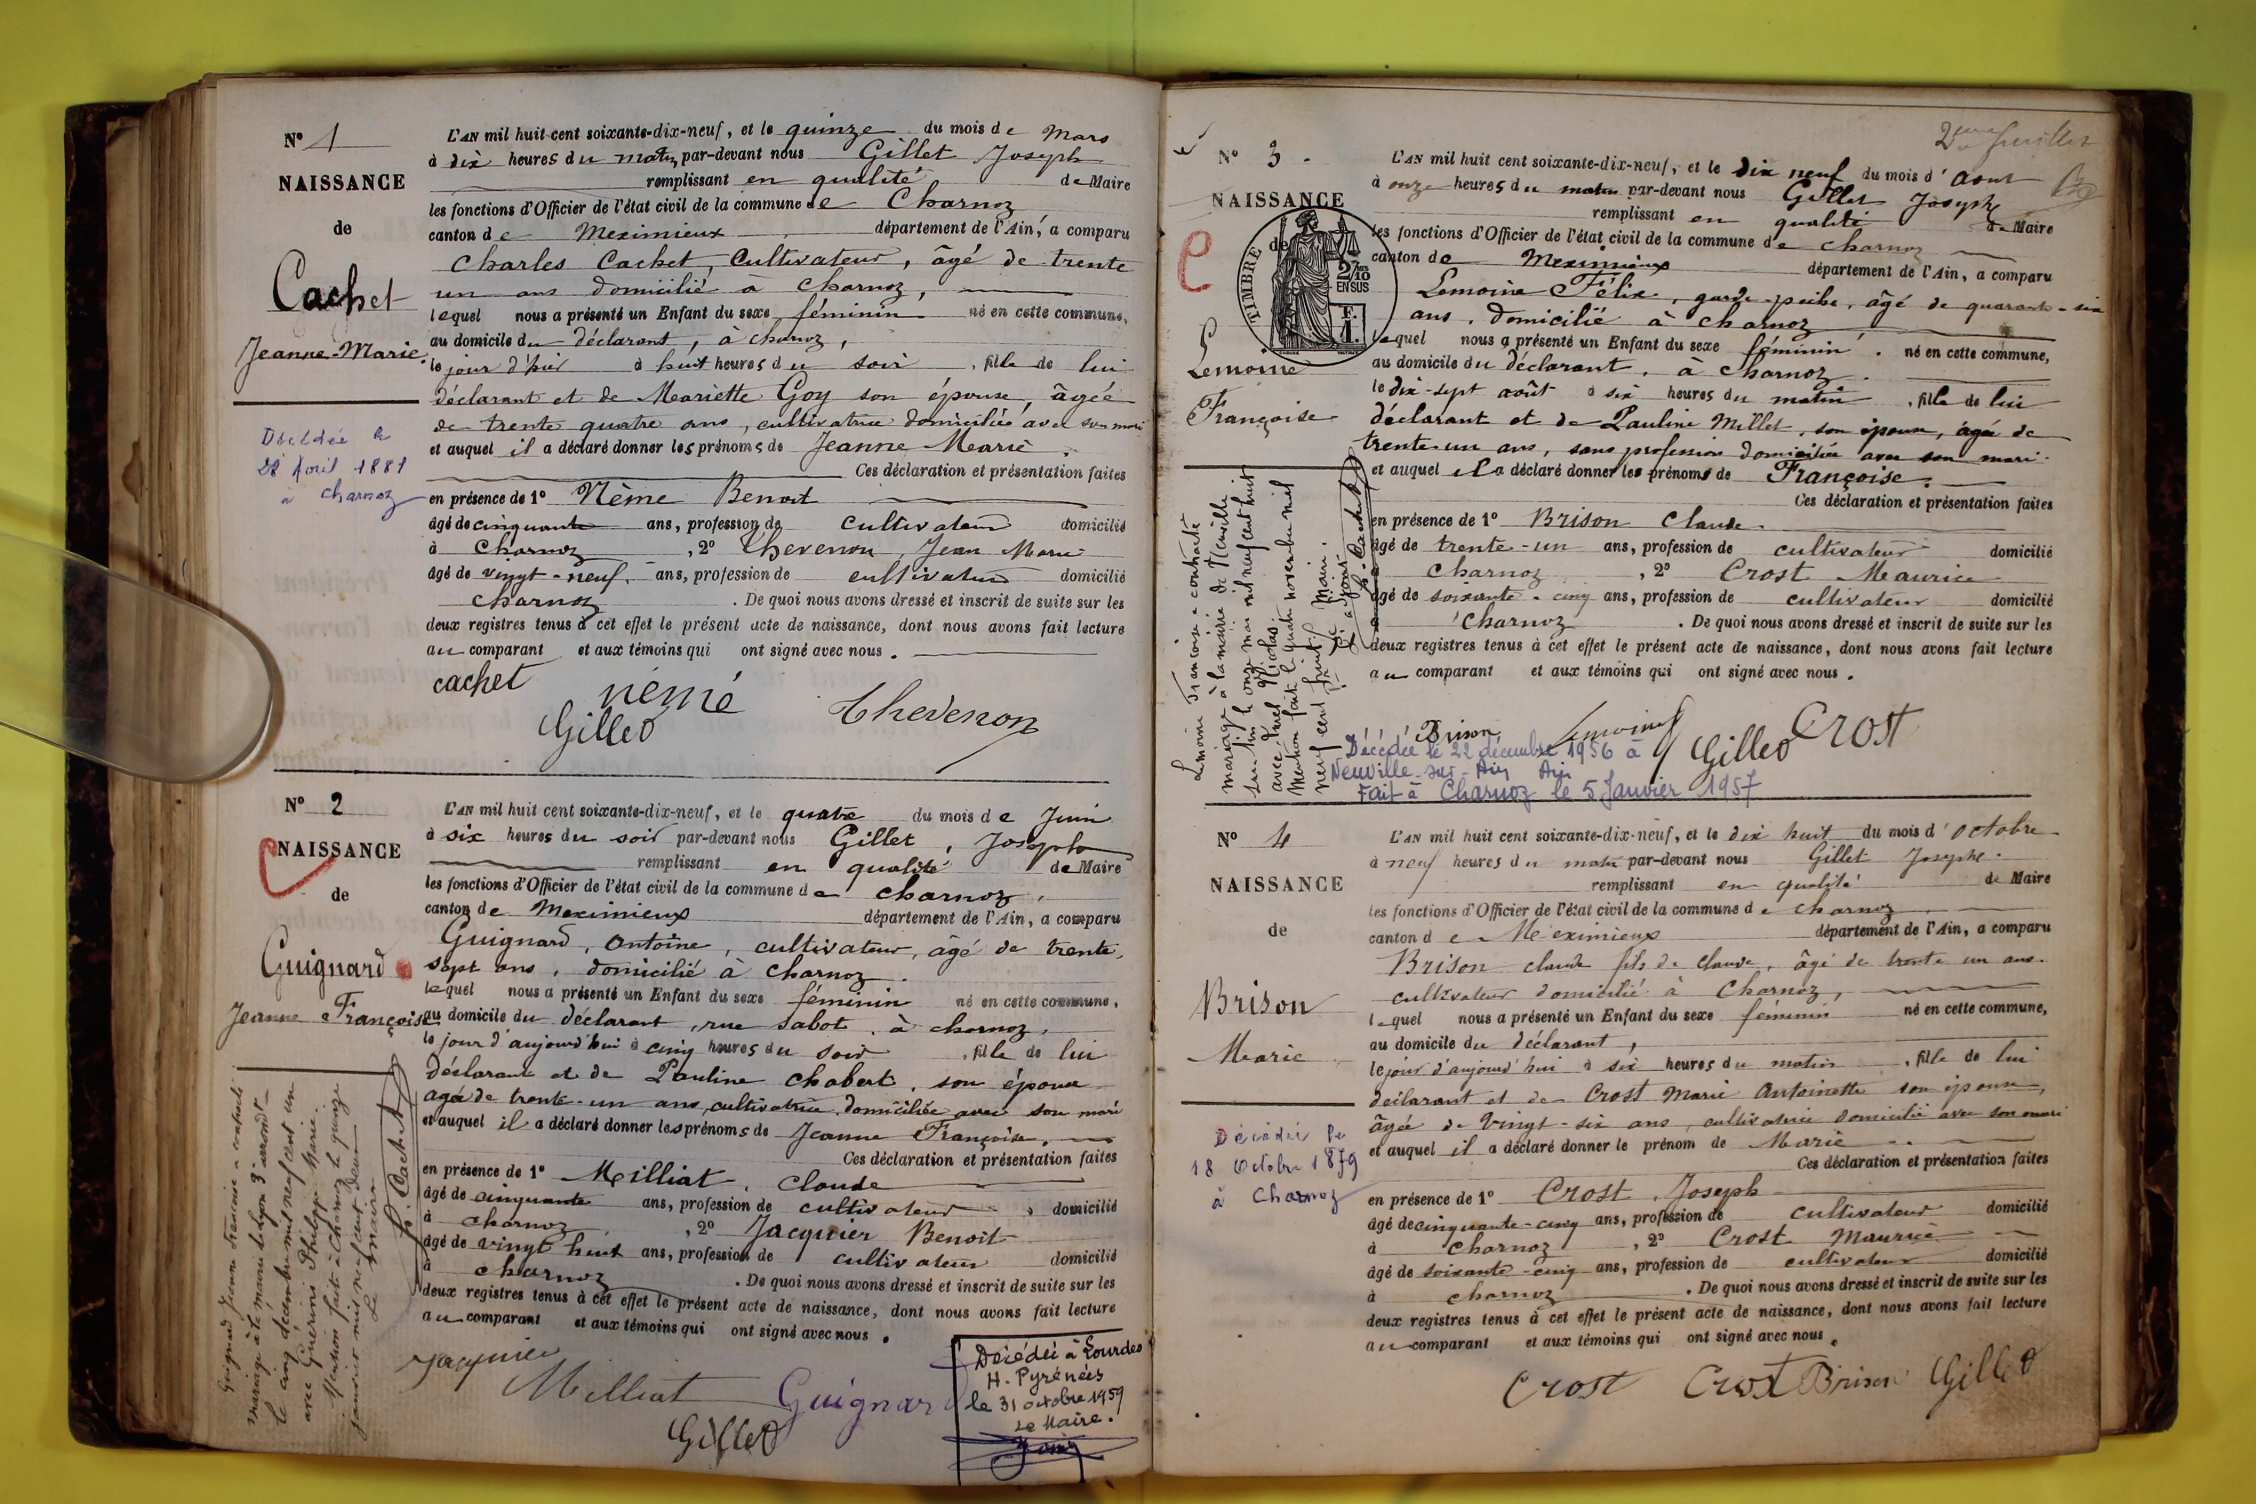 N° 1
NAISSANCE
de
Cachet
Jeanne-Marie
Décédée le
28 Avril 1881
à Charnoz
L'AN mil huit cent soixante-dix-neuf, et le quinze du mois de Mars
à dix heures du matin par-devant nous Gillet Joseph
remplissant en qualité de Maire
les fonctions d'Officier de l'état civil de la commune de Charnoz
canton de Meximieux département de l'Ain, a comparu
Charles Cachet, Cultivateur, âgé de trente
un ans domicilié à Charnoz,
lequel nous a présenté un Enfant du sexe féminin né en cette commune,
au domicile du déclarant, à charnoz,
le jour d'hier à huit heures du soir, fille de lui
déclarant et de Mariette Goy son épouse, âgée
de trente quatre ans, cultivatrice domiciliée avec son mari
et auquel il a déclaré donner les prénoms de Jeanne Marie.
Ces déclaration et présentation faites
en présence de 1° Nême Benoit
âgé de cinquante ans, profession de cultivateur domicilié
à Charnoz, 2° Chevenon, Jean Marie
âgé de vingt-neuf ans, profession de cultivateur domicilié
charnoz. De quoi nous avons dressé et inscrit de suite sur les
deux registres tenus à cet effet le présent acte de naissance, dont nous avons fait lecture
au comparant et aux témoins qui ont signé avec nous.
cachet nemé Chevenon
Gillet
N° 2
NAISSANCE
de
Guignard
Jeanne Françoise
Guignard Jeanne Francoise a contracté
mariage à la mairie de Lyon 3e arrondt
le cinq décembre mil neuf cent un
avec Guérini Philippe Marie.
Mention faite à Charnoz le quinze
janvier mil neuf cent deux
Le Maire
L'AN mil huit cent soixante-dix-neuf, et le quatre du mois de Juin
à six heures du soir par-devant nous Gillet, Joseph
remplissant en qualité de Maire
les fonctions d'Officier de l'état civil de la commune de charnoz,
canton de Meximieux département de l'Ain, a comparu
Guignard, Antoine, cultivateur, âgé de trente
sept ans, domicilié à Charnoz.
lequel nous a présenté un Enfant du sexe féminin né en cette commune,
au domicile du déclarant, rue Sabot, à charnoz,
le jour d'aujourd'hui à cinq heures du soir, fille de lui
déclarant et de Pauline Chabert, son épouse
agée de trente-un ans, cultivatrice domiciliée avec son mari
et auquel il a déclaré donner les prénoms de Jeanne Françoise.
Ces déclaration et présentation faites
en présence de 1° Milliat, Claude
âgé de cinquante ans, profession de cultivateur, domicilié
à charnoz, 2° Jacquier Benoit
âgé de vingt huit ans, profession de cultivateur domicilié
à charnoz. De quoi nous avons dressé et inscrit de suite sur les
deux registres tenus à cet effet le présent acte de naissance, dont nous avons fait lecture
au comparant et aux témoins qui ont signé avec nous.
Jacquier
Milliat Guignard
Gillet
Décédée à Lourdes
H. Pyrénées
le 31 octobre 1959
Le Maire.
2eme feuillet
N° 3
NAISSANCE
de
TIMBRE
2/10 EN SUS
Lemoine
Françoise
Lemoine Françoise a contracté
mariage à la mairie de Neuville
sur Ain le onze mai mil neuf cent huit
avec
Mention faite le quatre novembre mil
neuf cent huit. Le Maire.
L'AN mil huit cent soixante-dix-neuf, et le dix neuf du mois d'aout
à onze heures du matin par-devant nous Gillet Joseph
remplissant en qualité de Maire
les fonctions d'Officier de l'état civil de la commune de charnoz
canton de Meximieux département de l'Ain, a comparu
Lemoine Félix, garde-pêche, âgé de quarante-six
ans, domicilié à charnoz
lequel nous a présenté un Enfant du sexe féminin. né en cette commune,
au domicile du déclarant, à charnoz.
le dix-sept août à six heures du matin, fille de lui
déclarant et de Pauline Millet, son épouse, âgée de
trente-un ans, sans profession domiciliée avec son mari.
et auquel il a déclaré donner les prénoms de Françoise.
Ces déclaration et présentation faites
en présence de 1° Brison Claude.
âgé de trente-un ans, profession de cultivateur domicilié
à Charnoz, 2° Crost Maurice
âgé de soixante-cinq ans, profession de cultivateur domicilié
à Charnoz. De quoi nous avons dressé et inscrit de suite sur les
deux registres tenus à cet effet le présent acte de naissance, dont nous avons fait lecture
au comparant et aux témoins qui ont signé avec nous.
Brison Lemoine Gillet Crost
Décédée le 22 décembre 1956 à
Neuville-sur-Ain Ain
Fait à Charnoz le 5 Janvier 1957
N° 4
NAISSANCE
de
Brison
Marie
Décédée le
18 Octobre 1879
à Charnoz
L'AN mil huit cent soixante-dix-neuf, et le dix huit du mois d'octobre
à neuf heures du matin par-devant nous Gillet Joseph.
remplissant en qualité de Maire
les fonctions d'Officier de l'état civil de la commune de charnoz
canton de Meximieux département de l'Ain, a comparu
Brison claude fils de Claude, âgé de trente un ans.
cultivateur domicilié à Charnoz,
lequel nous a présenté un Enfant du sexe féminin né en cette commune,
au domicile du déclarant,
le jour d'aujourd'hui à six heures du matin, fille de lui
déclarant et de Crost Marie Antoinette son épouse,
âgée de vingt-six ans, cultivatrice domiciliée avec son mari
et auquel il a déclaré donner le prénom de Marie
Ces déclaration et présentation faites
en présence de 1° Crost, Joseph
âgé de cinquante-cinq ans, profession de cultivateur domicilié
à Charnoz, 2° Crost Maurice
âgé de soixante-cinq ans, profession de cultivateur domicilié
à charnoz. De quoi nous avons dressé et inscrit de suite sur les
deux registres tenus à cet effet le présent acte de naissance, dont nous avons fait lecture
au comparant et aux témoins qui ont signé avec nous.
Crost Crost Brison Gillet